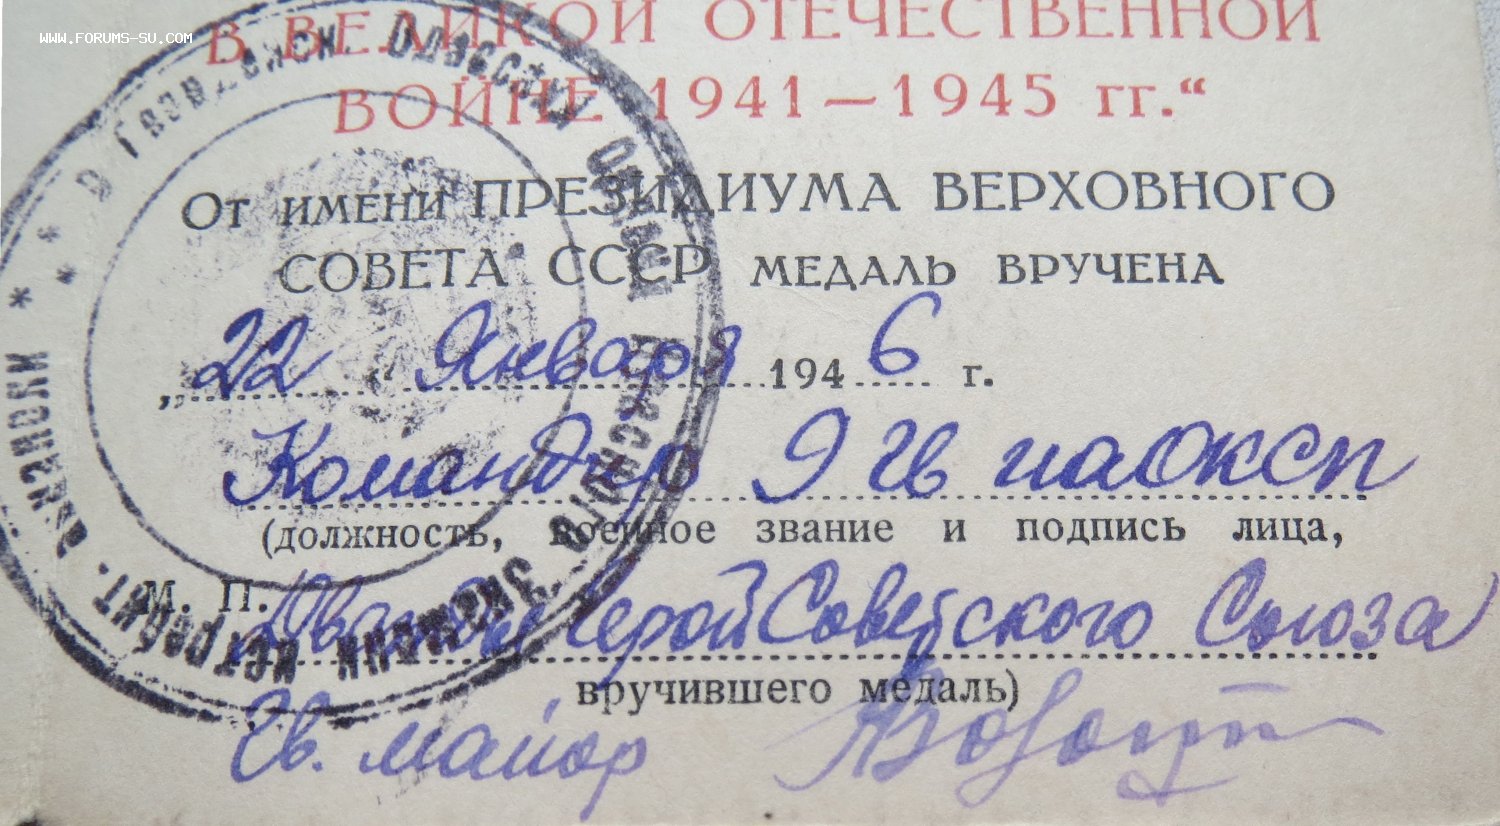 www.forums-su.com
В ВЕЛИКОЙ ОТЕЧЕСТВЕННОЙ
ВОЙНЕ 1941—1945 гг.“
От имени ПРЕЗИДИУМА ВЕРХОВНОГО
СОВЕТА СССР МЕДАЛЬ ВРУЧЕНА
„22“ Января 1946 г.
Командир 9 гв иаОксп
(должность, военное звание и подпись лица,
М. П.
Дважды Герой Советского Союза
вручившего медаль)
Гв. майор
* * * 9 Гвардейск. Одесский Ордена Красного Знамени истребит. авиаполк